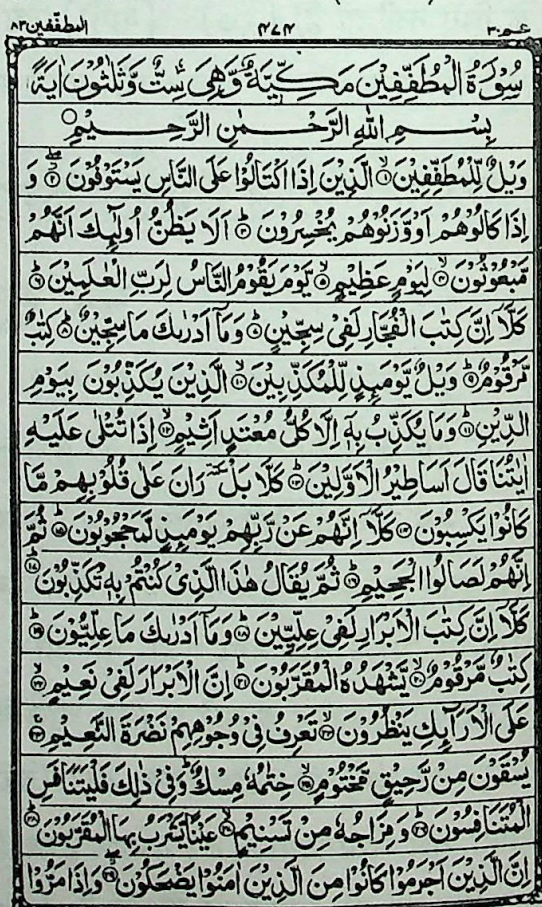 عـم ٣٠ ٤٧٤ المطففين ٨٣
سُوْرَةُ الْمُطَفِّفِيْنَ مَكِّيَّةٌ وَّهِىَ سِتٌّ وَّثَلٰثُوْنَ اٰيَةً
بِسْمِ اللّٰهِ الرَّحْمٰنِ الرَّحِيْمِ
وَيْلٌ لِّلْمُطَفِّفِيْنَ ۙ﴿۱﴾ الَّذِيْنَ اِذَا اكْتَالُوْا عَلَى النَّاسِ يَسْتَوْفُوْنَ ﴿۲﴾ وَ
اِذَا كَالُوْهُمْ اَوْ وَّزَنُوْهُمْ يُخْسِرُوْنَ ؕ﴿۳﴾ اَلَا يَظُنُّ اُولٰٓئِكَ اَنَّهُمْ
مَّبْعُوْثُوْنَ ۙ﴿۴﴾ لِيَوْمٍ عَظِيْمٍ ۙ﴿۵﴾ يَّوْمَ يَقُوْمُ النَّاسُ لِرَبِّ الْعٰلَمِيْنَ ؕ﴿۶﴾
كَلَّاۤ اِنَّ كِتٰبَ الْفُجَّارِ لَفِىْ سِجِّيْنٍ ؕ﴿۷﴾ وَمَاۤ اَدْرٰىكَ مَا سِجِّيْنٌ ؕ﴿۸﴾ كِتٰبٌ
مَّرْقُوْمٌ ؕ﴿۹﴾ وَيْلٌ يَّوْمَئِذٍ لِّلْمُكَذِّبِيْنَ ۙ﴿۱۰﴾ الَّذِيْنَ يُكَذِّبُوْنَ بِيَوْمِ
الدِّيْنِ ؕ﴿۱۱﴾ وَمَا يُكَذِّبُ بِهٖۤ اِلَّا كُلُّ مُعْتَدٍ اَثِيْمٍ ۙ﴿۱۲﴾ اِذَا تُتْلٰى عَلَيْهِ
اٰيٰتُنَا قَالَ اَسَاطِيْرُ الْاَوَّلِيْنَ ؕ﴿۱۳﴾ كَلَّا بَلْ ٚ رَانَ عَلٰى قُلُوْبِهِمْ مَّا
كَانُوْا يَكْسِبُوْنَ ﴿۱۴﴾ كَلَّاۤ اِنَّهُمْ عَنْ رَّبِّهِمْ يَوْمَئِذٍ لَّمَحْجُوْبُوْنَ ؕ﴿۱۵﴾ ثُمَّ
اِنَّهُمْ لَصَالُوا الْجَحِيْمِ ؕ﴿۱۶﴾ ثُمَّ يُقَالُ هٰذَا الَّذِىْ كُنْتُمْ بِهٖ تُكَذِّبُوْنَ ؕ﴿۱۷﴾
كَلَّاۤ اِنَّ كِتٰبَ الْاَبْرَارِ لَفِىْ عِلِّيِّيْنَ ؕ﴿۱۸﴾ وَمَاۤ اَدْرٰىكَ مَا عِلِّيُّوْنَ ؕ﴿۱۹﴾
كِتٰبٌ مَّرْقُوْمٌ ۙ﴿۲۰﴾ يَّشْهَدُهُ الْمُقَرَّبُوْنَ ؕ﴿۲۱﴾ اِنَّ الْاَبْرَارَ لَفِىْ نَعِيْمٍ ۙ﴿۲۲﴾
عَلَى الْاَرَآئِكِ يَنْظُرُوْنَ ۙ﴿۲۳﴾ تَعْرِفُ فِىْ وُجُوْهِهِمْ نَضْرَةَ النَّعِيْمِ ۚ﴿۲۴﴾
يُسْقَوْنَ مِنْ رَّحِيْقٍ مَّخْتُوْمٍ ۙ﴿۲۵﴾ خِتٰمُهٗ مِسْكٌ ؕ وَفِىْ ذٰلِكَ فَلْيَتَنَافَسِ
الْمُتَنَافِسُوْنَ ؕ﴿۲۶﴾ وَمِزَاجُهٗ مِنْ تَسْنِيْمٍ ۙ﴿۲۷﴾ عَيْنًا يَّشْرَبُ بِهَا الْمُقَرَّبُوْنَ ؕ﴿۲۸﴾
اِنَّ الَّذِيْنَ اَجْرَمُوْا كَانُوْا مِنَ الَّذِيْنَ اٰمَنُوْا يَضْحَكُوْنَ ﴿۲۹﴾ وَاِذَا مَرُّوْا